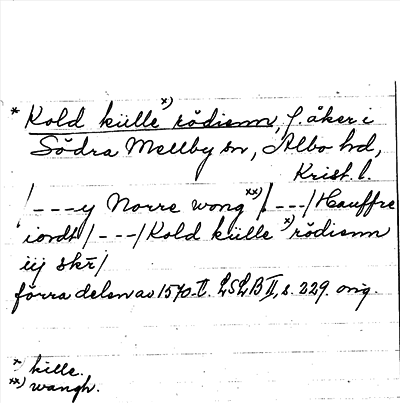 * Kold kille x) rödienn, f. åker i
Södra Mellby sn, Albo hd,
Krist. l.
/---y Norre wong xx) /---/ Hauffre
iordt /---/ Kold kille x) rödienn
iij skr̄/
förra delen av 1570-t. LSLB II, s. 229. orig.
x) hille.
xx) wangh.